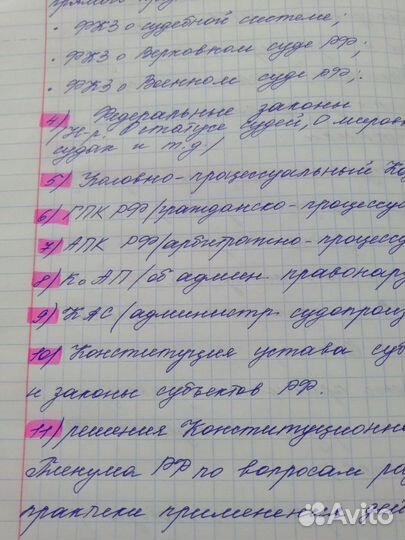 прямого
• ФКЗ о судебной системе;
• ФКЗ о Верховном суде РФ;
• ФКЗ о Военном суде РФ;
4) Федеральные законы
(Н-р, О статусе судей, О мировы
судах и т.д.)
5) Уголовно-процессуальный Код
6) ГПК РФ (гражданско-процессу
7) АПК РФ (арбитражно-процессу
8) КоАП (об админ. правонару
9) КАС (администр. судопроиз
10) Конституция устава суб
и законы субъектов РФ.
11) решения Конституционно
Пленума РФ по вопросам
практики применения
Avito